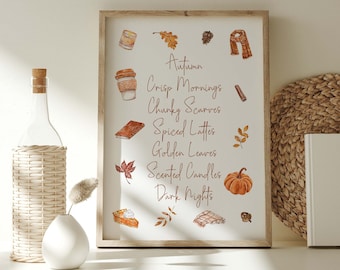 Autumn
Crisp Mornings
Chunky Scarves
Spiced Lattes
Golden Leaves
Scented Candles
Dark Nights